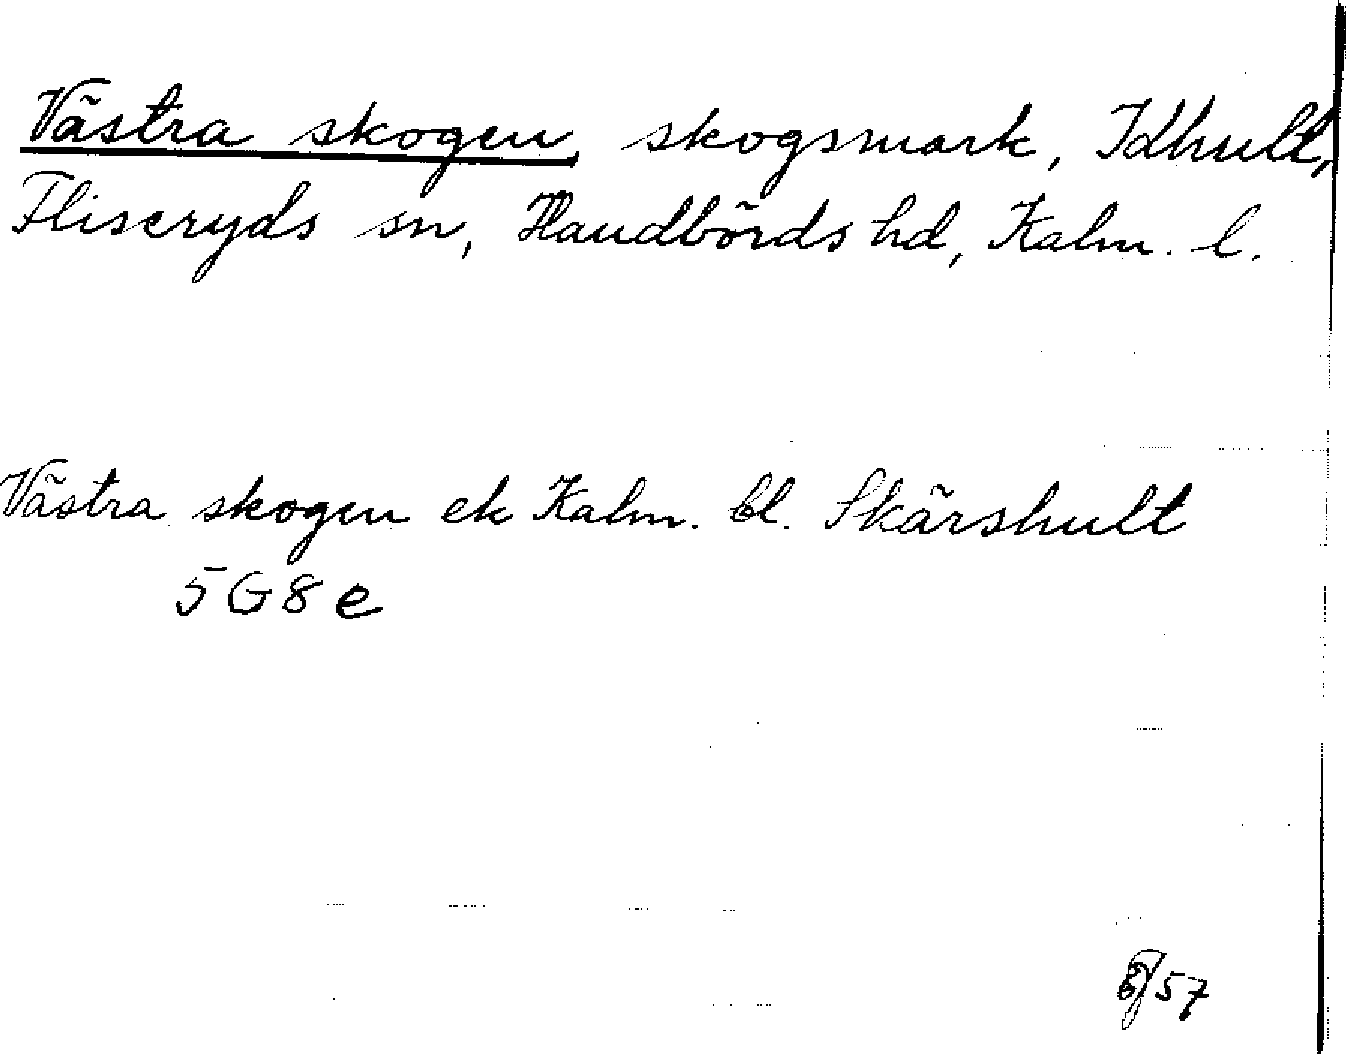 Västra skogen, skogsmark, Idhult,
Fliseryds sn, Handbörds hd, Kalm. l.
Västra skogen ek Kalm. bl. Skärshult
5G8e
57